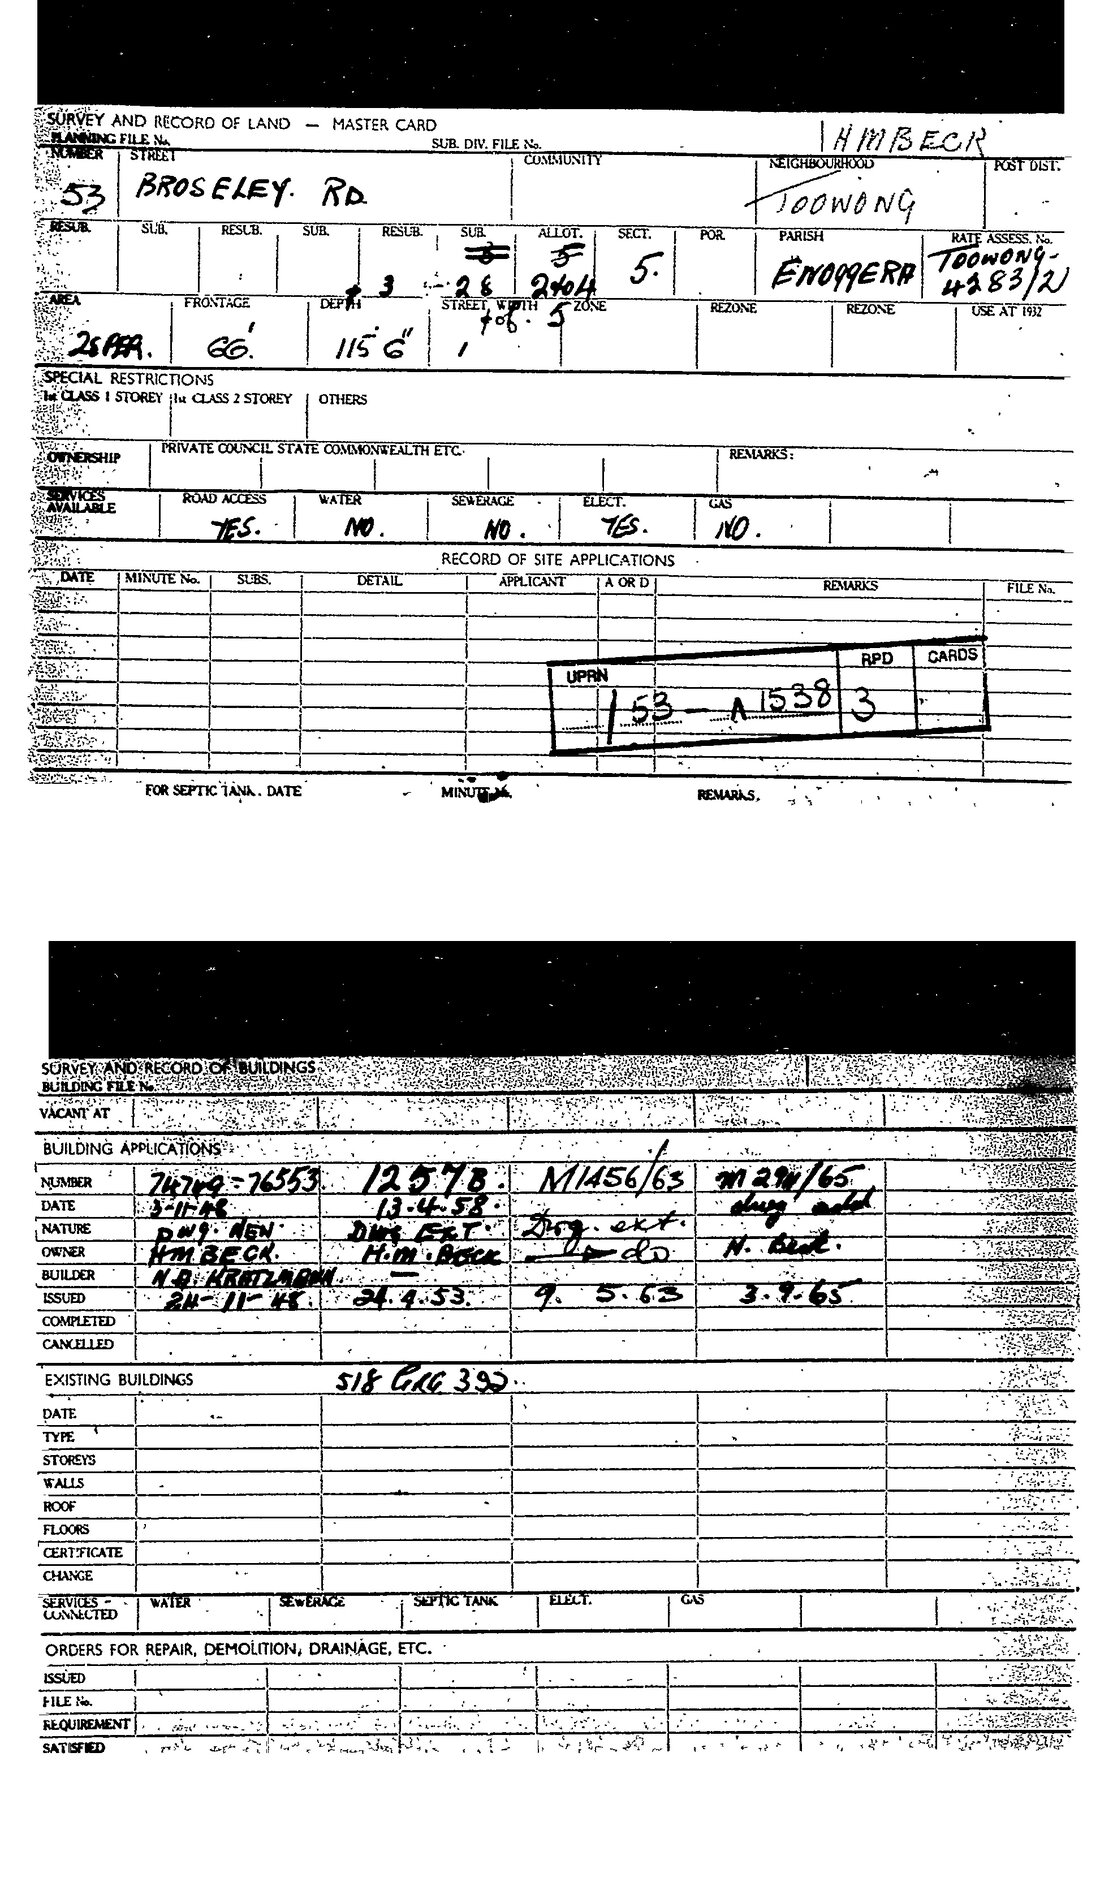 SURVEY AND RECORD OF LAND — MASTER CARD
PLANNING FILE No. SUB. DIV. FILE No. HMBECK
NUMBER STREET COMMUNITY NEIGHBOURHOOD POST DIST.
53 BROSELEY. RD TOOWONG
RESUB. SUB. RESUB. SUB. RESUB. SUB. ALLOT. SECT. POR. PARISH RATE ASSESS. No.
3 28 2 to 4 5. ENOGGERA TOOWONG- 4283/21
AREA FRONTAGE DEPTH STREET, WIDTH ZONE REZONE REZONE USE AT 1932
& of 5
28 PER. 66' 115' 6" 1
SPECIAL RESTRICTIONS
1st CLASS 1 STOREY 1st CLASS 2 STOREY OTHERS
OWNERSHIP PRIVATE COUNCIL STATE COMMONWEALTH ETC. REMARKS:
SERVICES AVAILABLE ROAD ACCESS WATER SEWERAGE ELECT. GAS
YES. NO. NO. YES. NO.
RECORD OF SITE APPLICATIONS
DATE MINUTE No. SUBS. DETAIL APPLICANT A OR D REMARKS FILE No.
UPRN RPD CARDS
153 - A 1538 3
FOR SEPTIC TANK. DATE MINUTE No. REMARKS.
SURVEY AND RECORD OF BUILDINGS
BUILDING FILE No.
VACANT AT
BUILDING APPLICATIONS
NUMBER 74749-76553. 12578. M1456/63 /65
DATE 3-11-48 13.4.58.
NATURE DWG. NEW. DWG EXT. Dwg. ext.
OWNER HM BECK. H.M. BECK do H. Beck.
BUILDER KRATZMANN —
ISSUED 24-11-48. 24.4.53. 9. 5.63 3.9.65
COMPLETED
CANCELLED
EXISTING BUILDINGS 518 392
DATE
TYPE
STOREYS
WALLS
ROOF
FLOORS
CERTIFICATE
CHANGE
SERVICES - CONNECTED WATER SEWERAGE SEPTIC TANK ELECT. GAS
ORDERS FOR REPAIR, DEMOLITION, DRAINAGE, ETC.
ISSUED
FILE No.
REQUIREMENT
SATISFIED